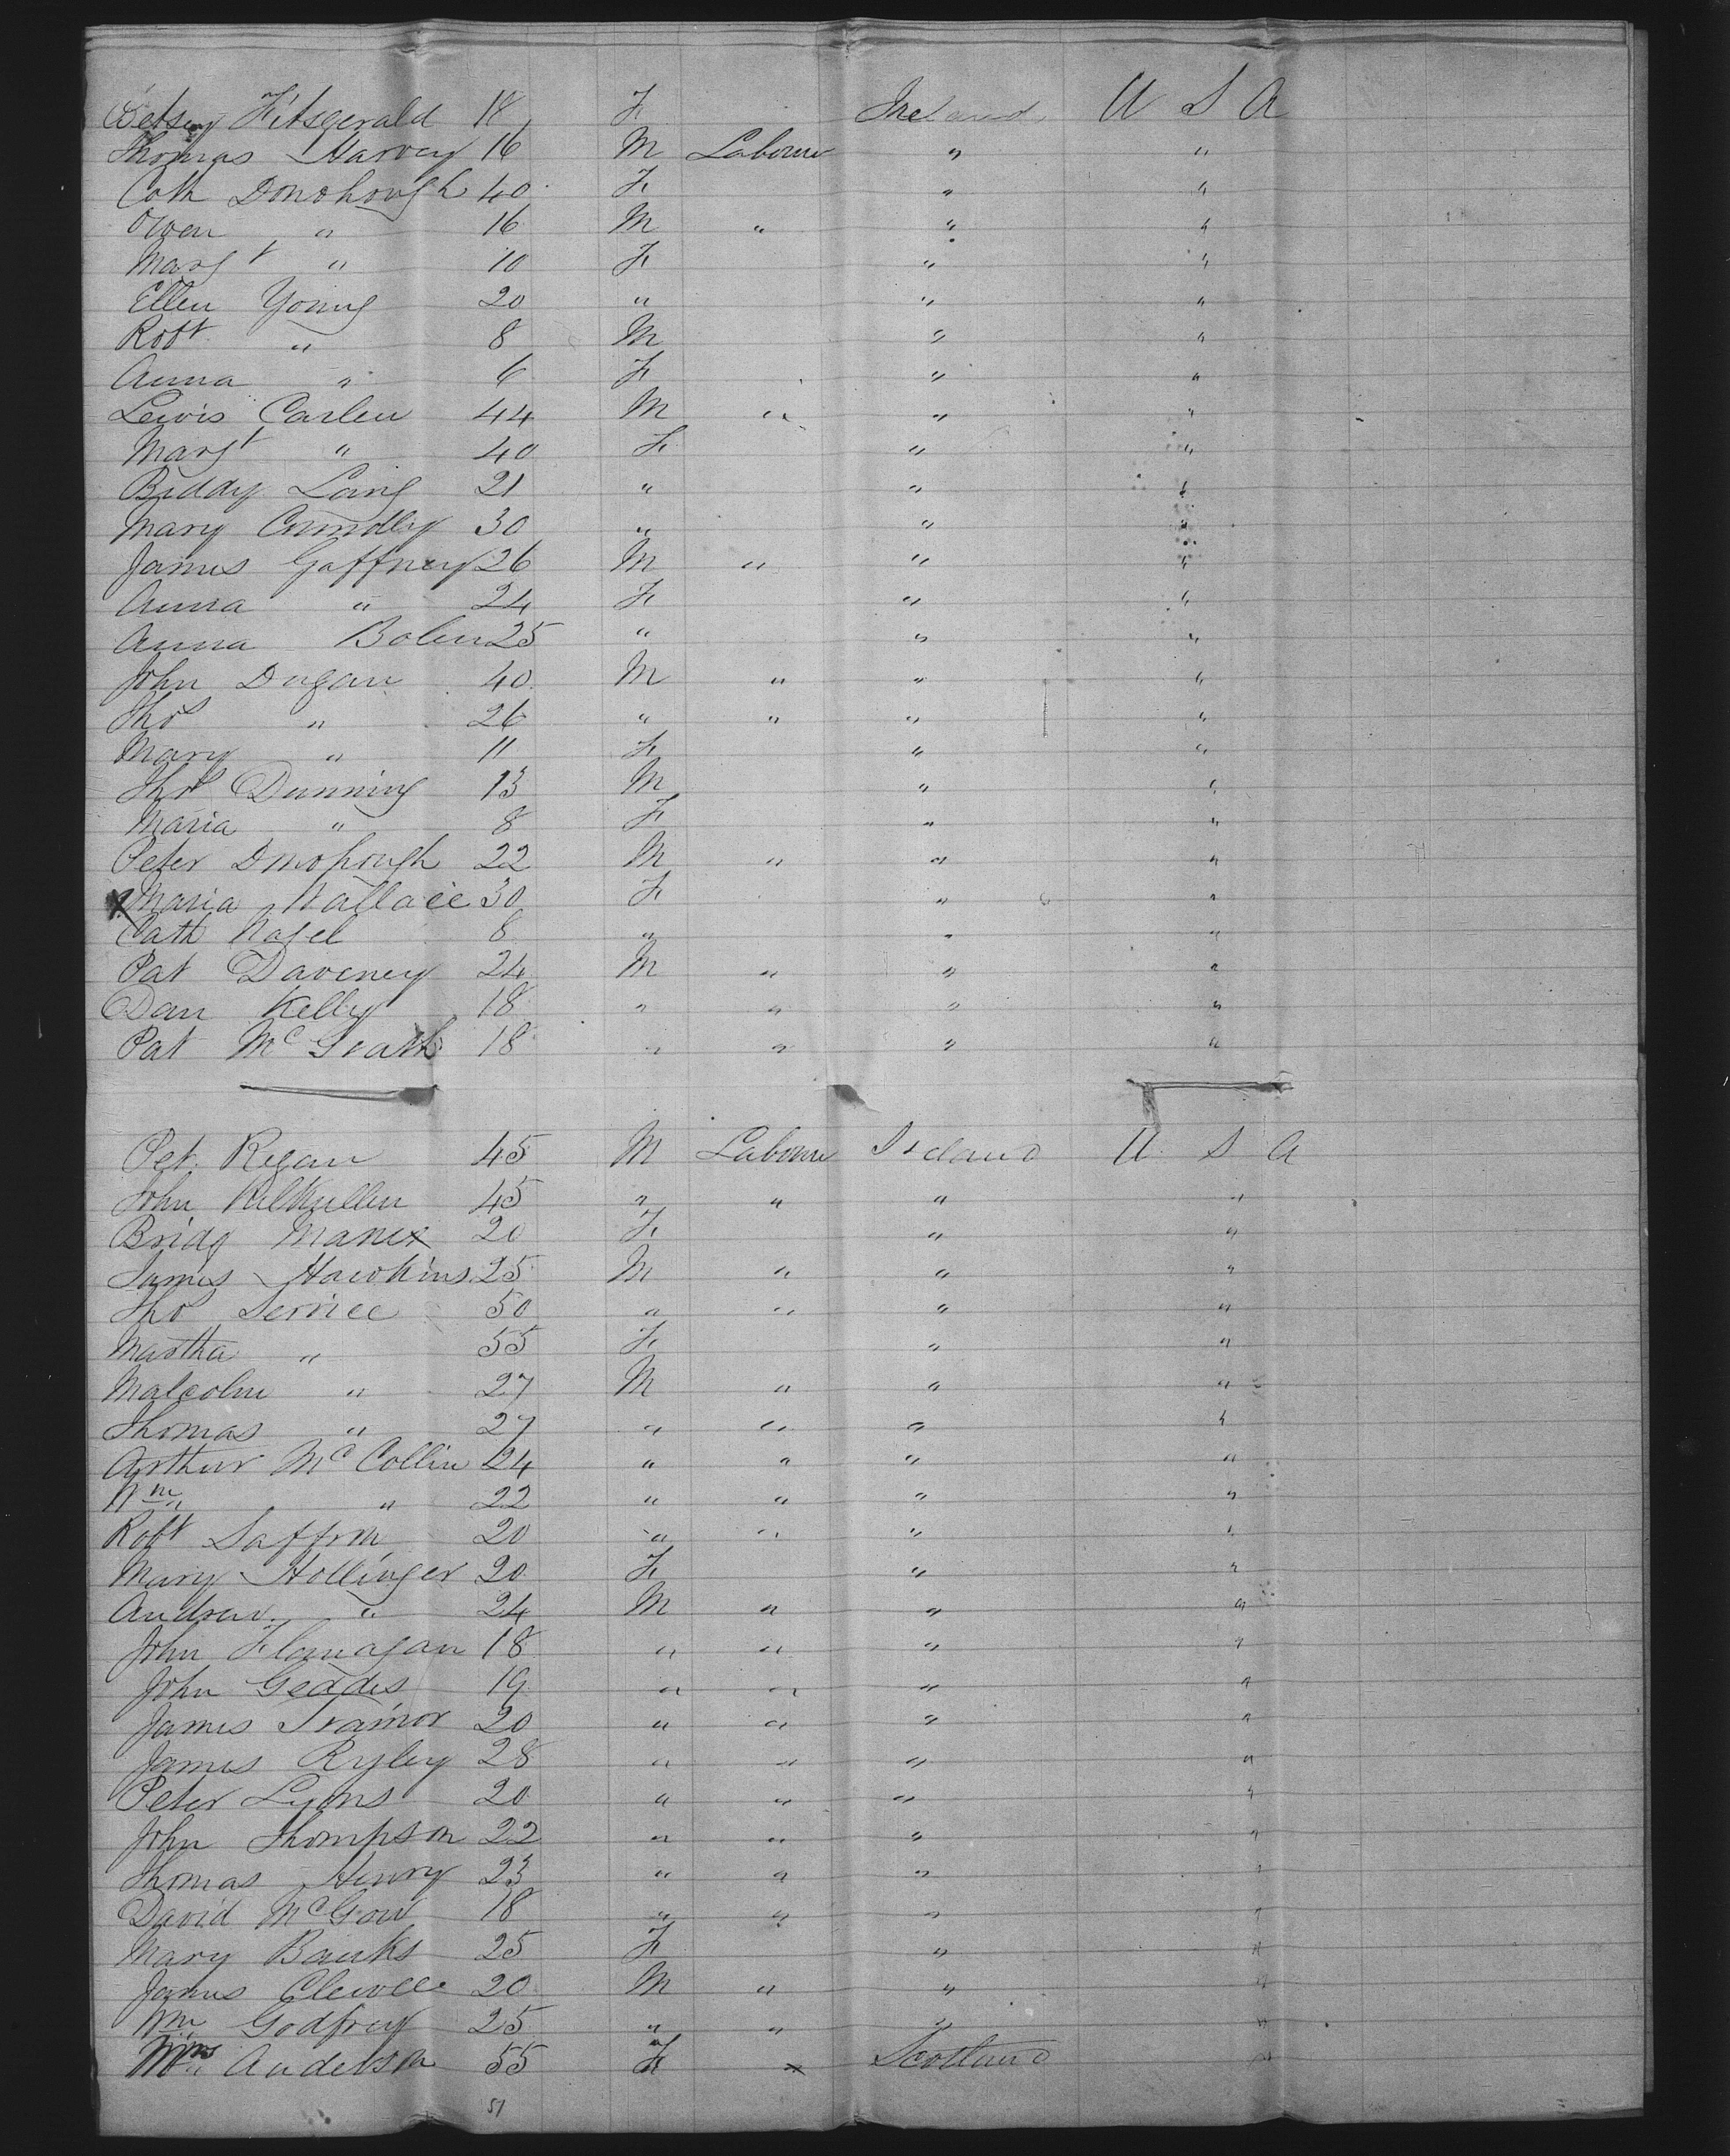 Betsey Fitsgerald 18 F Ireland U S A
Thomas Harvey 16 M Labourer " "
Cath Donohough 40 F " "
Owen " 16 M " " "
Margt " 10 F " "
Ellen Young 20 " " "
Robt " 8 M " "
Anna " 6 F " "
Lewis Carlen 44 M " " "
Margt " 40 F " "
Biddy Laing 21 " " "
Mary 30 " " "
James Gaffney 26 M " " "
Anna " 24 F " "
Anna Bolen 25 " " "
John Dugan 40 M " " "
Thos " 26 " " " "
Mary " 11 F " "
Thos Dunning 13 M " "
Maria " 8 F " "
Peter Donohough 22 M " " "
X Maria Wallace 30 F " "
Cath Nagel 8 " " "
Pat Daveney 24 M " " "
Dan Kelly 18 " " " "
Pat McGrath 18 " " " "
Pet. Regan 45 M Labourer Ireland U S A
John Kilkullen 45 " " " "
Bridg Manex 20 F " "
James Hawkins 25 M " " "
Thos Service 50 " " " "
Martha " 55 F " "
Malcolm " 27 M " " "
Thomas " 27 " " " "
Arthur McCollin 24 " " " "
Wm " 22 " " " "
Robt Saffron 20 " " " "
Mary Hollinger 20 F " "
Andrew " 24 M " " "
John Flanagan 18 " " " "
John Geddes 19 " " " "
James Trainor 20 " " " "
James Ryley 28 " " " "
Peter Lyons 20 " " " "
John Thompson 22 " " " "
Thomas Henry 23 " " " "
David McGow 18 " " " "
Mary Banks 25 F " "
James 20 M " " "
Wm Godfrey 25 " " " "
Anderson 55 F Scotland "
51